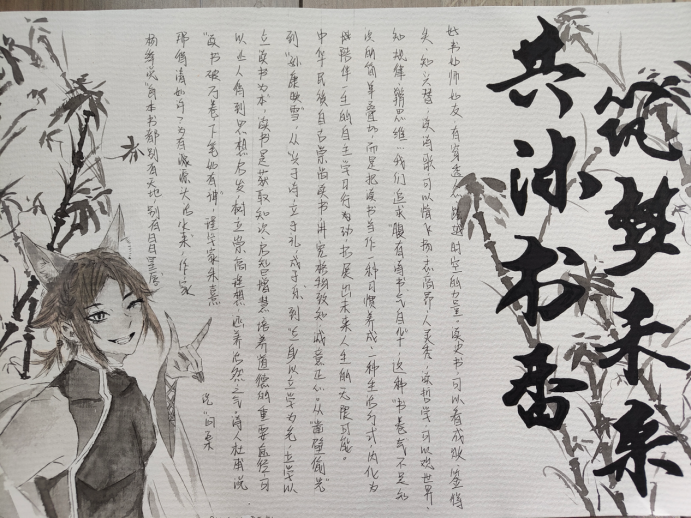 筑梦未来
共沐书香
好书如师如友，有穿透人心跨越时空的力量。读史书，可以看成败、鉴得
失、知兴替；读诗歌可以情飞扬、志高昂、人灵秀；读哲学可以观世界、
知规律、辨思维…我们追求"腹有诗书气自华"，这种"书卷气"不是知
识的简单叠加，而是把读书当作一种习惯养成，一种生活方式，内化为
陪伴一生的自主学习行为，劝书展出未来人生的无限可能。
中华民族自古崇尚读书，讲究格物致知、诚意正心。从"凿壁偷光"
到"孙康映雪"，从"兴于诗，立于礼，成于乐"到"立身以立学为先，立学以
读书为本"，读书是获取知识、启智增慧、培养道德的重要途径，可
以让人得到思想启发，树立崇高理想，涵养浩然之气。诗人杜甫说
"读书破万卷，下笔如有神"，理学家朱熹
说"问渠
那得清如许？为有源头活水来"，作家
杨绛说每本书都别有天地，别有日月星辰